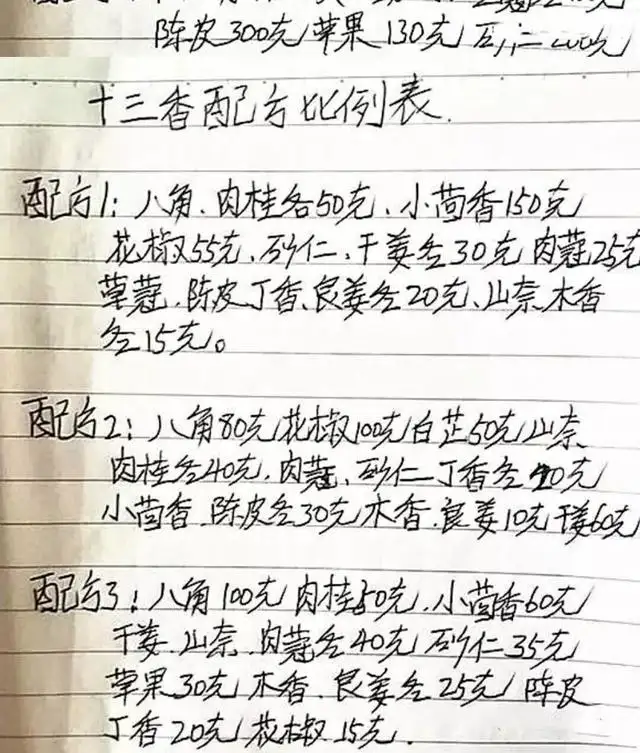 陈皮300克草果130克
十三香配方比例表.
配方1：八角、肉桂各50克、小茴香150克
花椒55克、砂仁、干姜各30克肉蔻25克
草蔻、陈皮丁香、良姜各20克、山奈、木香
各15克。
配方2：八角80克花椒100克白芷50克山奈、
肉桂各40克、肉蔻、砂仁、丁香各20克
小茴香、陈皮各30克木香、良姜10克干姜60克
配方3：八角100克肉桂50克、小茴香60克
干姜、山奈、肉蔻各40克砂仁35克
草果30克木香、良姜各25克陈皮
丁香20克花椒15克.